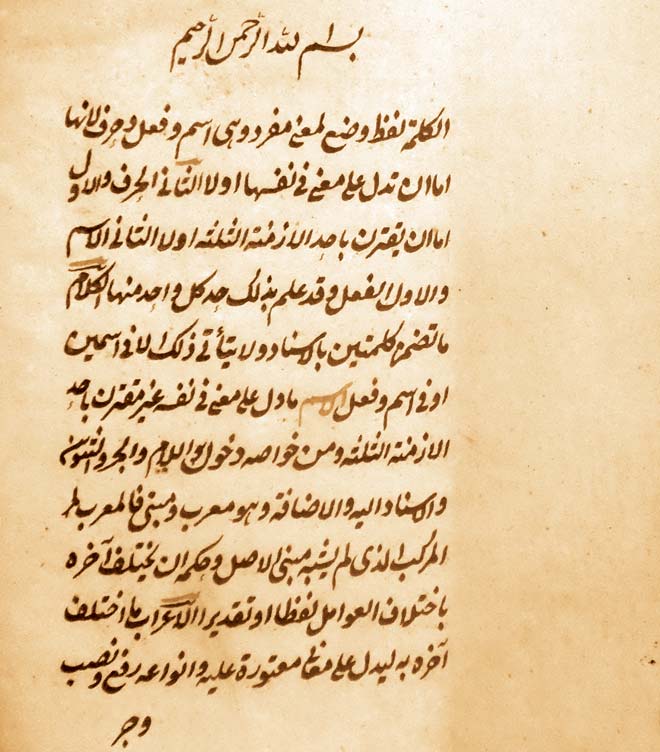 بسم الله الرحمن الرحيم
الكلمة لفظ وضع لمعنى مفرد وهى اسم وفعل وحرف لانها
اما ان تدل على معنى فى نفسها او لا الثانى الحرف والاول
اما ان يقترن باحد الازمنة الثلثة او لا الثانى الاسم
والاول الفعل وقد علم بذلك حد كل واحد منها الكلام
ما تضمن كلمتين بالاسناد ولا يتأتى ذلك الا فى اسمين
او فى اسم وفعل الاسم ما دل على معنى فى نفسه غير مقترن باحد
الازمنة الثلثة ومن خواصه دخول اللام والجر والتنوين
والاسناد اليه والاضافة وهو معرب ومبنى فالمعرب
المركب الذى لم يشبه مبنى الاصل وحكمه ان يختلف آخره
باختلاف العوامل لفظا او تقديرا الاعراب ما اختلف
آخره به ليدل على معانى معتورة عليه وانواعه رفع ونصب
وجر